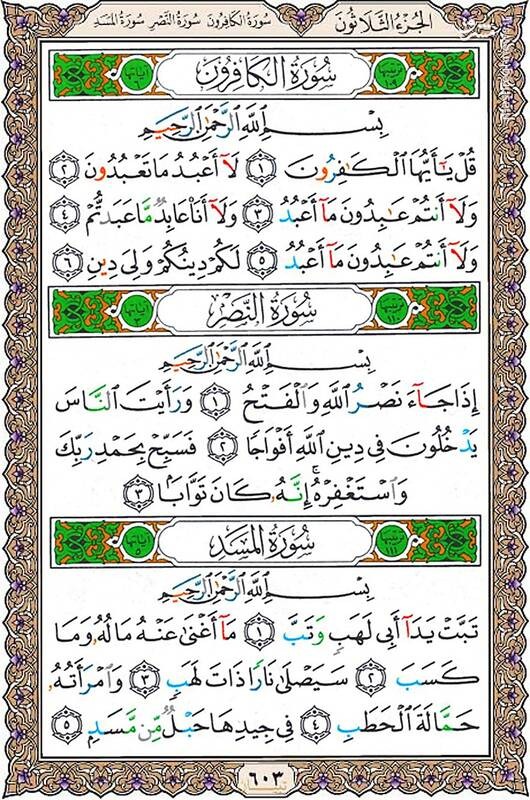 الجزء الثلاثون سورة الكافرون سورة النصر سورة المسد
ترتيبها ١٠٩ سورة الكافرون آياتها ٦
بِسْمِ اللَّهِ الرَّحْمَٰنِ الرَّحِيمِ
قُلْ يَا أَيُّهَا الْكَافِرُونَ ١ لَا أَعْبُدُ مَا تَعْبُدُونَ ٢
وَلَا أَنتُمْ عَابِدُونَ مَا أَعْبُدُ ٣ وَلَا أَنَا عَابِدٌ مَّا عَبَدتُّمْ ٤
وَلَا أَنتُمْ عَابِدُونَ مَا أَعْبُدُ ٥ لَكُمْ دِينُكُمْ وَلِيَ دِينِ ٦
ترتيبها سورة النصر آياتها
بِسْمِ اللَّهِ الرَّحْمَٰنِ الرَّحِيمِ
إِذَا جَاءَ نَصْرُ اللَّهِ وَالْفَتْحُ ١ وَرَأَيْتَ النَّاسَ
يَدْخُلُونَ فِي دِينِ اللَّهِ أَفْوَاجًا ٢ فَسَبِّحْ بِحَمْدِ رَبِّكَ
وَاسْتَغْفِرْهُ ۚ إِنَّهُ كَانَ تَوَّابًا ٣
ترتيبها ١١١ سورة المسد آياتها ٥
بِسْمِ اللَّهِ الرَّحْمَٰنِ الرَّحِيمِ
تَبَّتْ يَدَا أَبِي لَهَبٍ وَتَبَّ ١ مَا أَغْنَىٰ عَنْهُ مَالُهُ وَمَا
كَسَبَ ٢ سَيَصْلَىٰ نَارًا ذَاتَ لَهَبٍ ٣ وَامْرَأَتُهُ
حَمَّالَةَ الْحَطَبِ ٤ فِي جِيدِهَا حَبْلٌ مِّن مَّسَدٍ ٥
٦٠٣